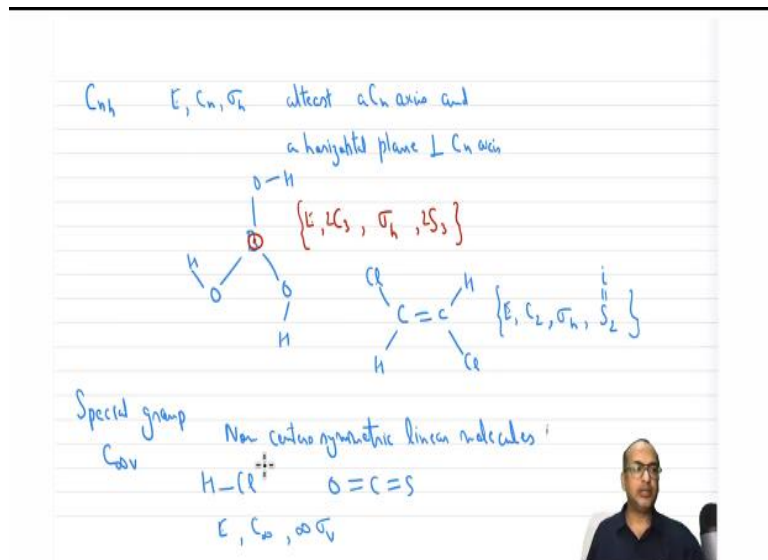 Cnh E, Cn, σh atleast a Cn axis and
a horizontal plane ⊥ Cn axis
O–H
{E, 2C3, σh, 2S3}
H
O O
H
Cl H i
C=C {E, C2, σh, S2}
H Cl
Special group Non centro symmetric linear molecules
C∞v
H–Cl O=C=S
E, C∞, ∞σv